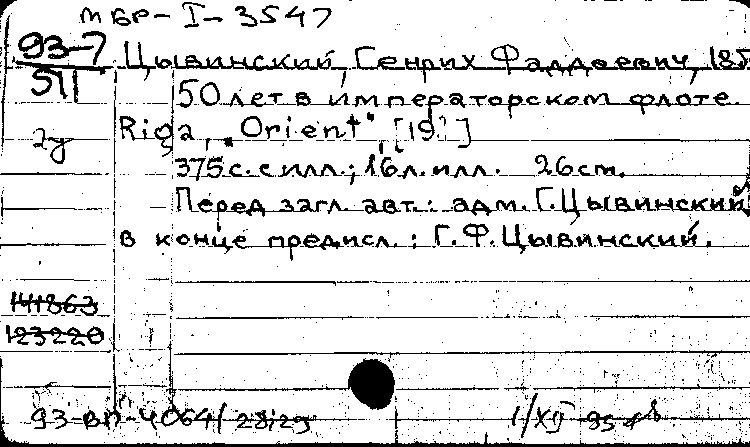 МБР-I-3547
93-7 Цывинский, Генрих Фаддеевич, 185
511 50 лет в императорском флоте.
Riga, „Orient", [19.]
375 с. с илл.; 16 л. илл. 26 cm.
Перед загл. авт.: адм. Г. Цывинский
в конце предисл.: Г. Ф. Цывинский.
141863
123220
93-ВП-4064/28;29